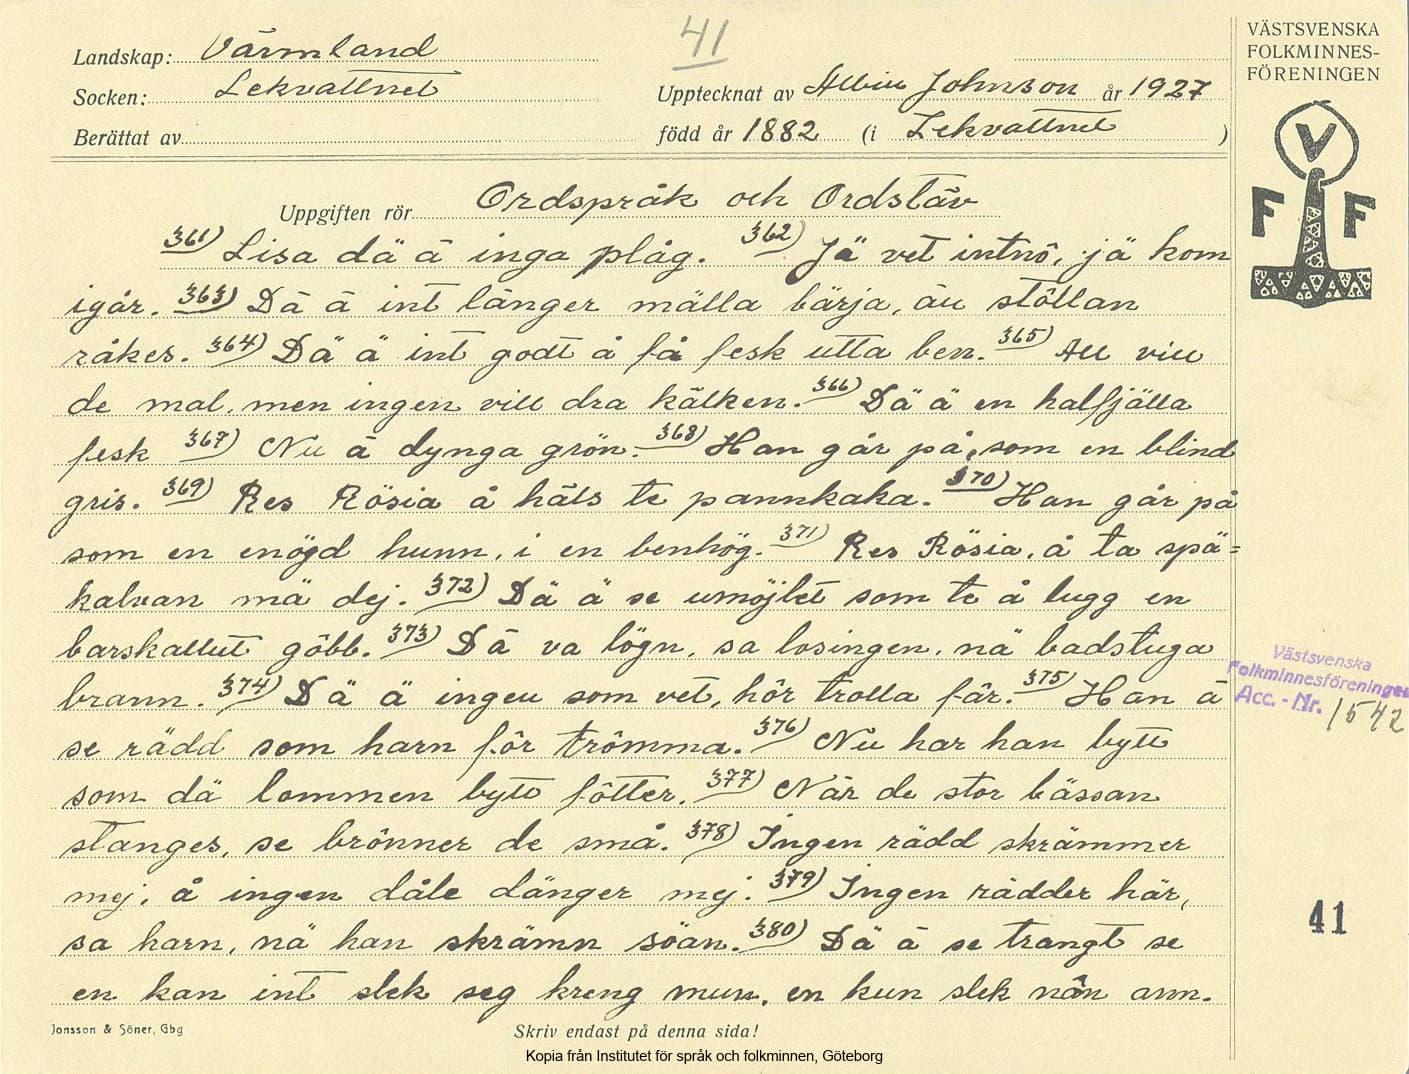 41
Landskap: Värmland
Socken: Lekvattnet
Upptecknat av Albin Johnson år 1927
Berättat av
född år 1882 (i Lekvattnet )
VÄSTSVENSKA
FOLKMINNES-
FÖRENINGEN
V
F F
Uppgiften rör Ordspråk och Ordstäv
361) Lisa dä ä inga plåg. 362) Jä vet intnö, jä kom
igår. 363) Dä ä int länger mälla bärja, än stöllan
råkes. 364) Dä ä int godt å få fesk utta ben. 365) All vill
de mal, men ingen vill dra kälken. 366) Dä ä en halfjälla
fesk 367) Nu ä dynga grön. 368) Han går på, som en blind
gris. 369) Res Rösia å häls te pannkaka. 370) Han går på
som en enögd hunn, i en benhög. 371) Res Rösia, å ta spä=
kalvan mä dej. 372) Dä ä se umöjlet som te å lugg en
barskallut göbb. 373) Dä va lögn, sa losingen, nä badstuga
brann. 374) Dä ä ingen som vet, hör trolla får. 375) Han ä
se rädd som harn för trömma. 376) Nu har han bytt
som dä lommen bytt fötter. 377) När de stor bässan
stanges, se brönner de små. 378) Ingen rädd skrämmer
mej, å ingen dåle dänger mej. 379) Ingen rädder här,
sa harn, nä han skrämn söan. 380) Dä ä se trangt se
en kan int slek seg kreng mun, en kun slek nön ann.
Västsvenska
Folkminnesföreningen
Acc. - Nr. 1542
41
Jonsson & Söner, Gbg
Skriv endast på denna sida!
Kopia från Institutet för språk och folkminnen, Göteborg